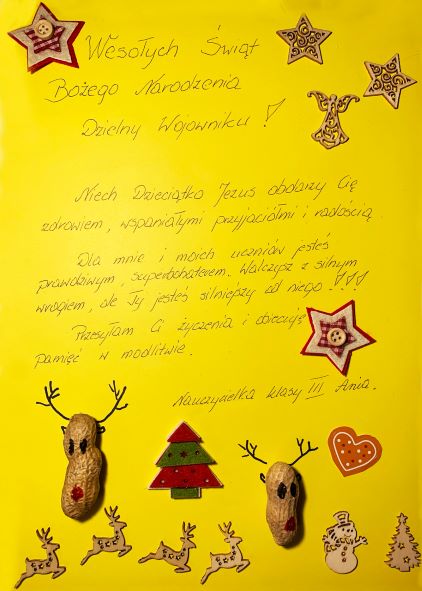 Wesołych Świąt
Bożego Narodzenia
Dzielny Wojowniku!
Niech Dzieciątko Jezus obdarzy Cię
zdrowiem, wspaniałymi przyjaciółmi i radością.
Dla mnie i moich uczniów jesteś
prawdziwym, superbohaterem. Walczysz z silnym
wrogiem, ale Ty jesteś silniejszy od niego!!!
Przesyłam Ci życzenia i obiecuję
pamięć w modlitwie.
Nauczycielka klasy III Ania.